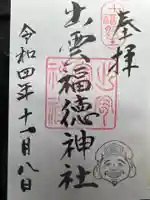 奉拝
出雲福徳神社
令和四年十一月八日